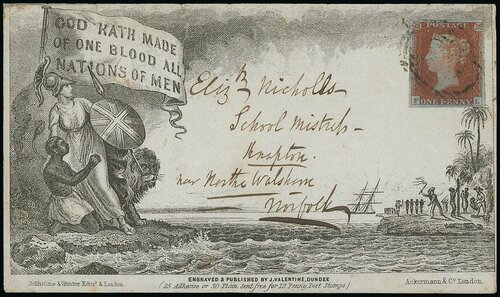 GOD HATH MADE
OF ONE BLOOD ALL
NATIONS OF MEN
POSTAGE
ONE PENNY
F L
Elizth Nicholls
School Mistress
Knapton.
near North Walsham
Norfolk
ENGRAVED & PUBLISHED BY J. VALENTINE, DUNDEE
(25 Adhesive or 30 Plain sent free for 12 Penny Post Stamps)
Johnstone & Hunter Edinr. & London.
Ackermann & Co. London.